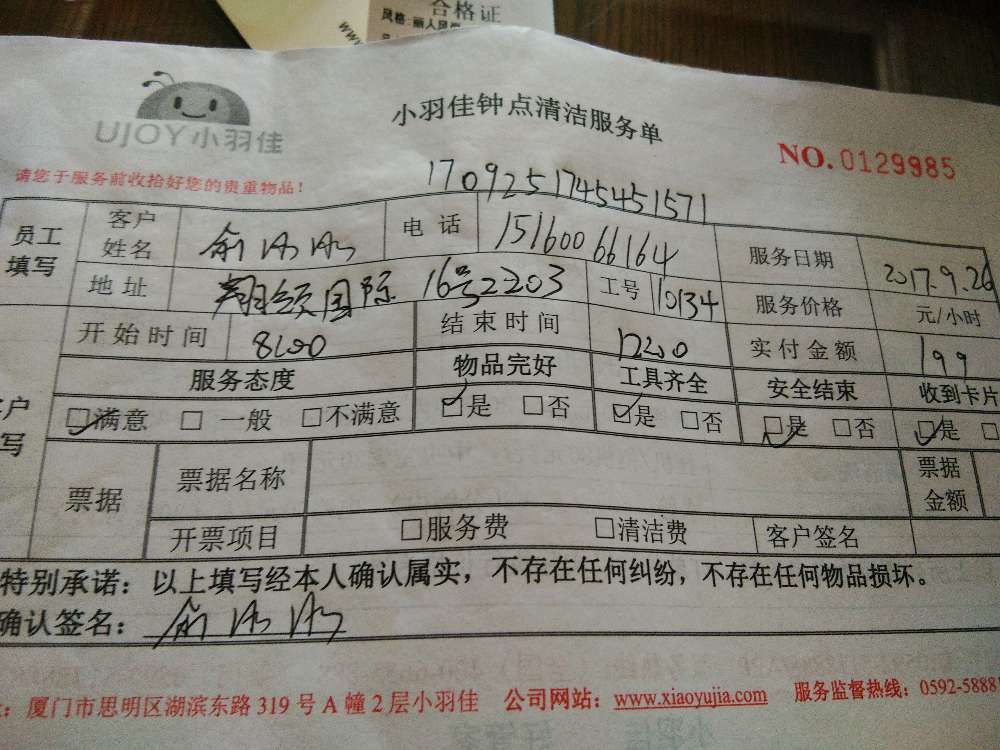 合格证
风格:丽人风
www
UJOY小羽佳
小羽佳钟点清洁服务单
NO.0129985
请您于服务前收拾好您的贵重物品!
170925174545 1571
员工填写 客户姓名 俞 电话 15160066164 服务日期 2017.9.26
地址 翔领国际 16号2203 工号 110134 服务价格 元/小时
开始时间 8:00 结束时间 1200 实付金额 199
服务态度 物品完好 工具齐全 安全结束 收到卡片
☑满意 □一般 □不满意 ☑是 □否 ☑是 □否 ☑是 □否 ☑是 □
户
写
票据 票据名称 票据金额
开票项目 □服务费 □清洁费 客户签名
特别承诺:以上填写经本人确认属实,不存在任何纠纷,不存在任何物品损坏。
确认签名:俞
:厦门市思明区湖滨东路319号A幢2层小羽佳 公司网站:www.xiaoyujia.com 服务监督热线:0592-5888